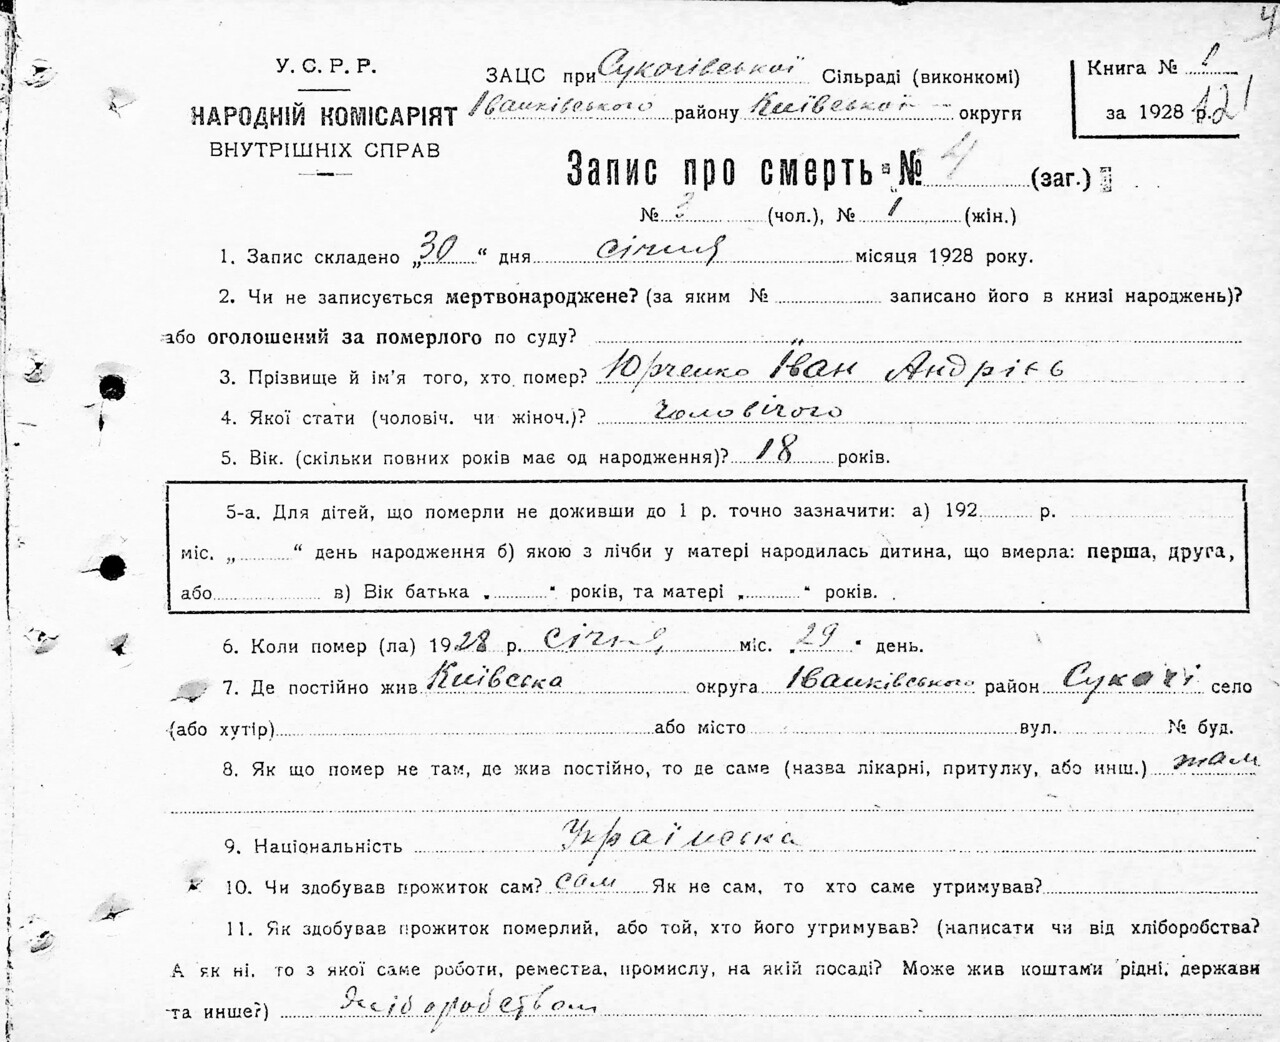 4
У. С. Р. Р.
НАРОДНІЙ КОМІСАРІЯТ
ВНУТРІШНІХ СПРАВ
ЗАЦС при Сукачівської Сільраді (виконкомі)
Іванківського району Київської округи
Книга №
за 1928 р.
Запис про смерть № 4 (заг.)
№ 3 (чол.), № 1 (жін.)
1. Запис складено „30“ дня січня місяця 1928 року.
2. Чи не записується мертвонароджене? (за яким № записано його в книзі народжень)?
або оголошений за померлого по суду? „
3. Прізвище й ім’я того, хто помер? Юрченко Іван Андрієв
4. Якої стати (чоловіч. чи жіноч.)? Чоловічого
5. Вік. (скільки повних років має од народження)? 18 років.
5-а. Для дітей, що померли не доживши до 1 р. точно зазначити: а) 192 р.
міс. „ “ день народження б) якою з лічби у матері народилась дитина, що вмерла: перша, друга,
або в) Вік батька „ “ років, та матері „ “ років.
6. Коли помер (ла) 1928 р. січня міс. „29“ день.
7. Де постійно жив Київська округа Іванківського район Сукачі село
(або хутір) або місто вул. № буд.
8. Як що помер не там, де жив постійно, то де саме (назва лікарні, притулку, або инш.) там
9. Національність Українська
10. Чи здобував прожиток сам? сам Як не сам, то хто саме утримував?
11. Як здобував прожиток померлий, або той, хто його утримував? (написати чи від хліборобства?
А як ні, то з якої саме роботи, ремества, промислу, на якій посаді? Може жив коштами рідні, держави
та инше?) Хліборобством